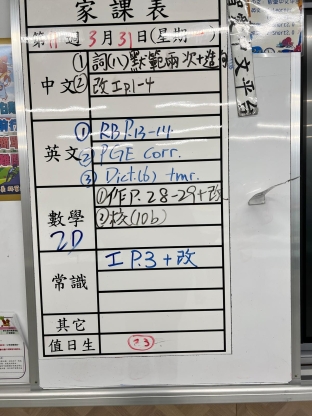 家課表
第11週3月31日(星期一)
中文
①詞(八)默範兩次+造句
②改工P.1-4
英文
①RB P.13-14
②PGE Corr.
③Dict.(6) tmr.
數學
2D
①作P.28-29+改
②核(10b)
常識
工P.3+改
其它
值日生
23
文平台